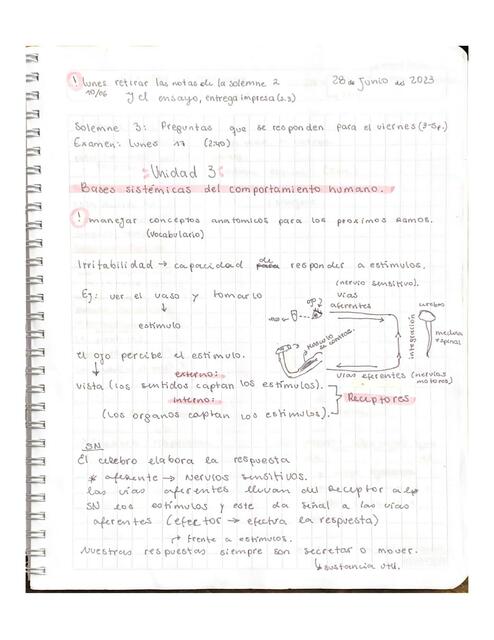 ! lunes retirar las notas de la solemne 2
28 de Junio del 2023
10/06 y el ensayo, entrega impresa (s.s)
Solemne 3: Preguntas que se responden para el viernes (3-5p.)
Examen: Lunes 17 (2:40)
Unidad 3
Bases sistémicas del comportamiento humano.
! manejar conceptos anatómicos para los proximos ramos.
(vocabulario)
Irritabilidad → capacidad de responder a estímulos.
(nervio sensitivo).
Ej: ver el vaso y tomarlo
vías aferentes
ojo
cerebro
↓
estímulo
integración
medula espinal
musculo se contrae.
el ojo percibe el estímulo.
vías eferentes (nervios motores)
externo:
vista (los sentidos captan los estímulos).
interno:
Receptores
(los organos captan los estímulos).
SN
El cerebro elabora la respuesta
* aferente → Nervios sensitivos.
las vías aferentes llevan del receptor al
SN los estímulos y este da señal a las vías
aferentes (efector → efectúa la respuesta)
↱ frente a estímulos.
Nuestras respuestas siempre son secretar o mover.
↳ sustancia util.